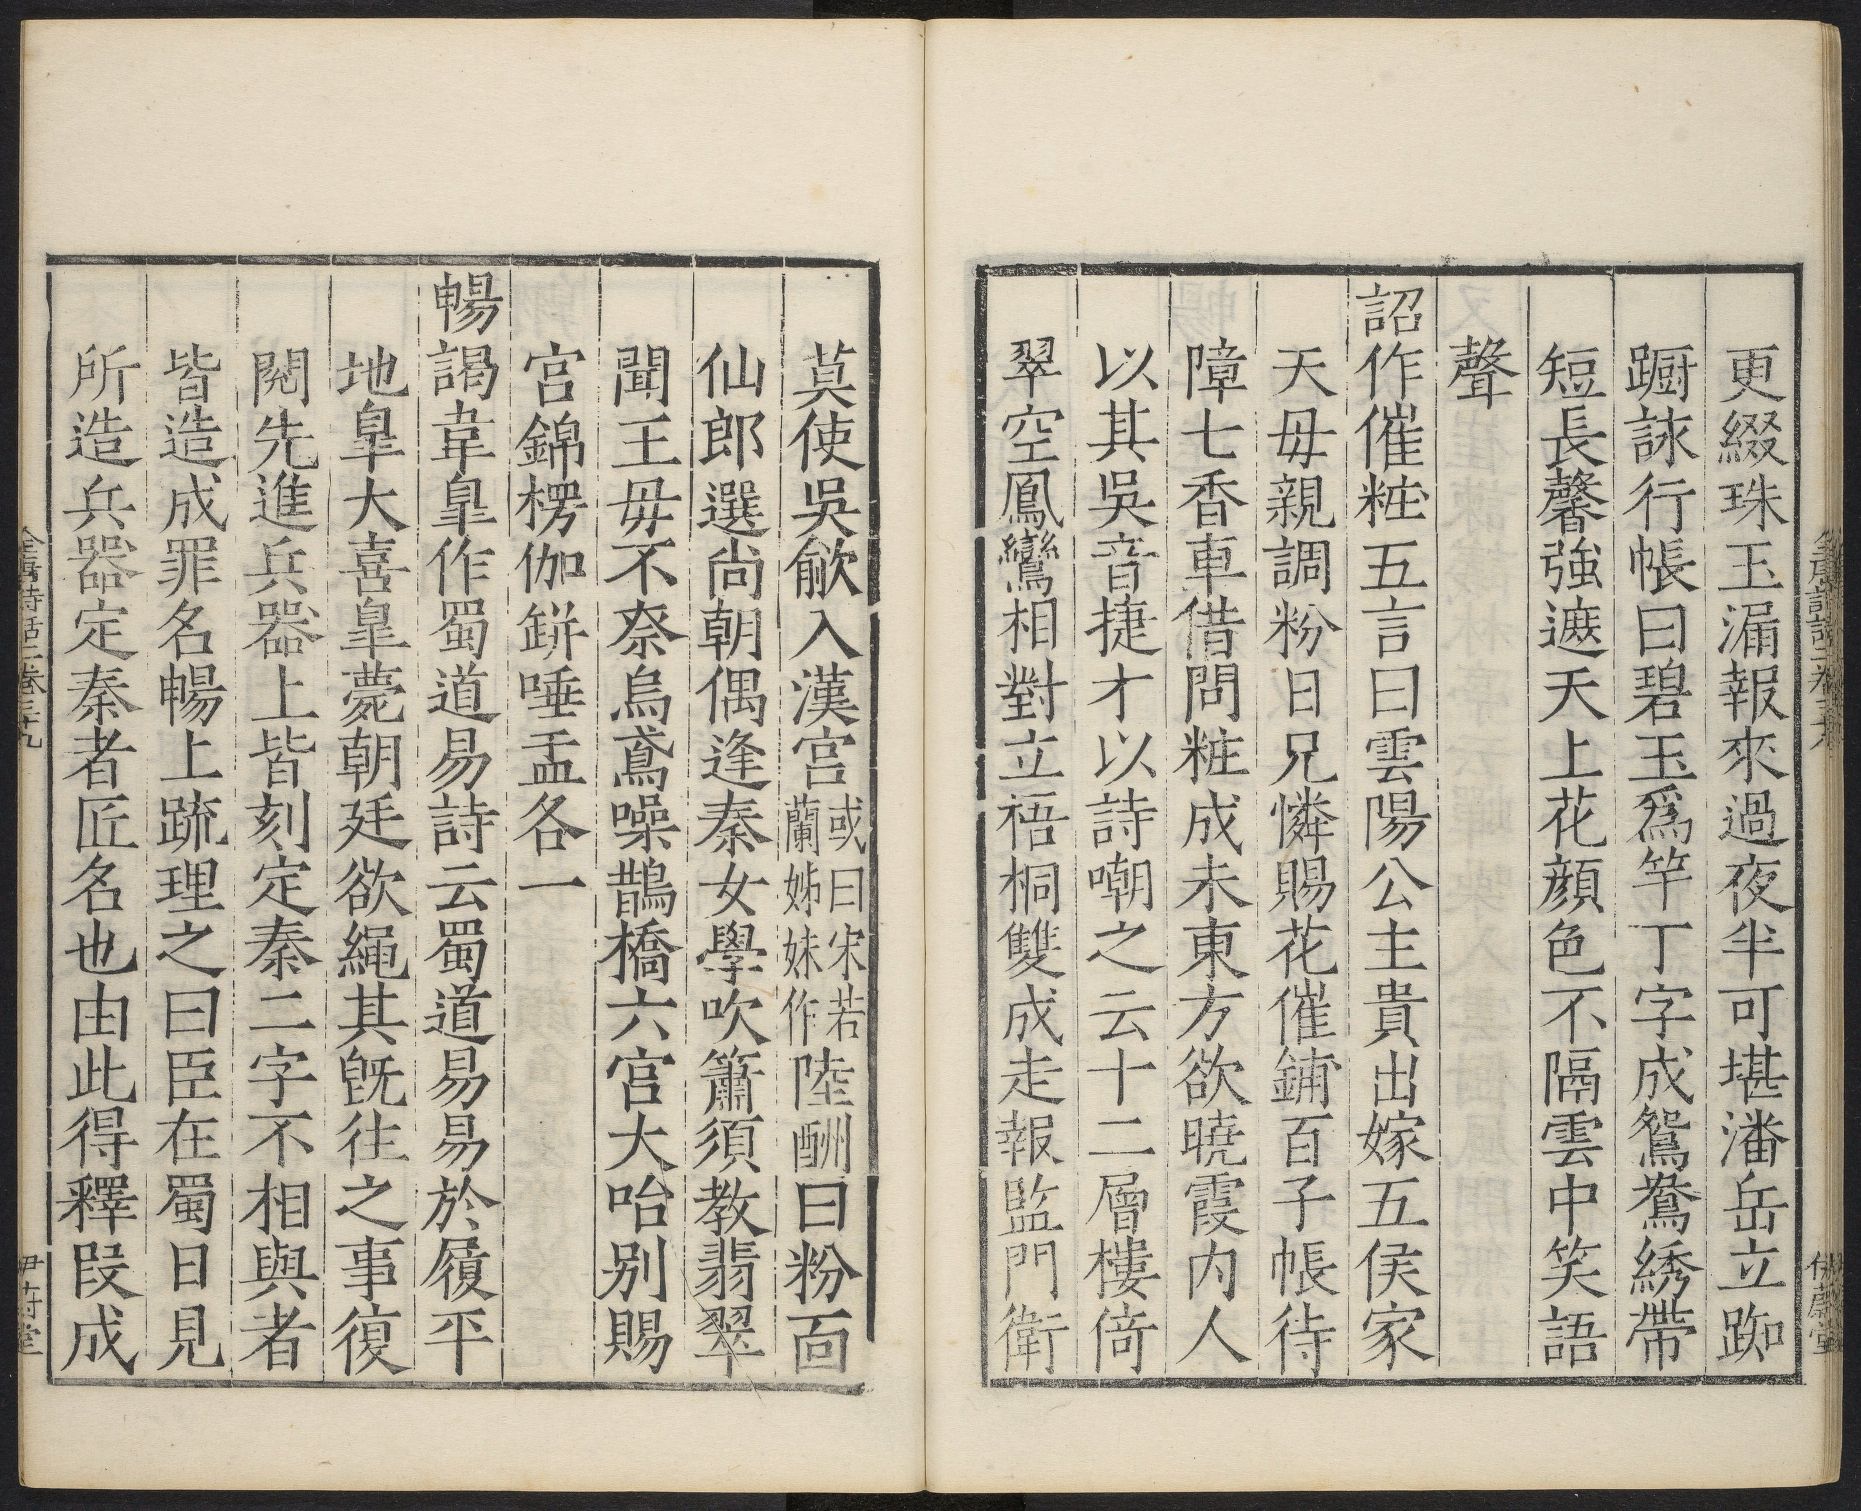 更綴珠玉漏報來過夜半可堪潘岳立踟
蹰詠行帳曰碧玉爲竿丁字成鴛鴦綉帶
短長馨強遮天上花顔色不隔雲中笑語
聲
詔作催粧五言曰雲陽公主貴出嫁五侯家
天毋親調粉日兄憐賜花催鋪百子帳待
障七香車借問粧成未東方欲曉霞内人
以其吳音捷才以詩嘲之云十二層樓倚
翠空鳳鸞相對立梧桐雙成走報監門衛
莫使吳歈入漢宮或曰宋若蘭姊妹作陸酬曰粉面
仙郎選尚朝偶逢秦女學吹簫須教翡翠
聞王毋不柰烏鳶噪鵲橋六宮大咍别賜
宮錦楞伽缾唾盂各一
暢謁韋臯作蜀道易詩云蜀道易易於履平
地臯大喜臯薨朝廷欲繩其旣往之事復
閱先進兵器上皆刻定秦二字不相與者
皆造成罪名暢上疏理之曰臣在蜀日見
所造兵器定秦者匠名也由此得釋叚成